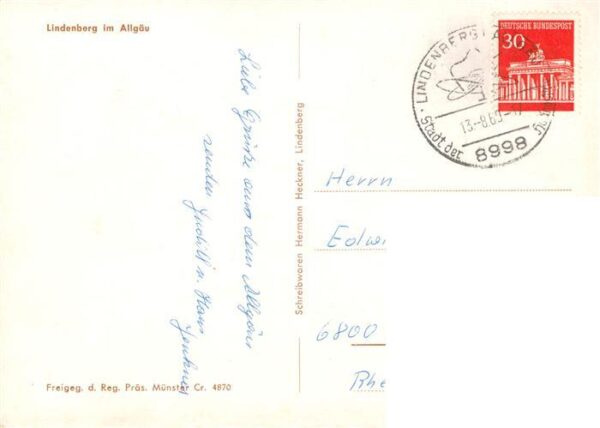 Lindenberg im Allgäu
Liebe Grüße aus dem Allgäu
senden Judith u. Hans
Schreibwaren Hermann Heckner, Lindenberg
DEUTSCHE BUNDESPOST
30
LINDENBERG
13.-8.69
Stadt der
8998
Herrn
Edwi
6800
Rhe
Freigeg. d. Reg. Präs. Münster Cr. 4870